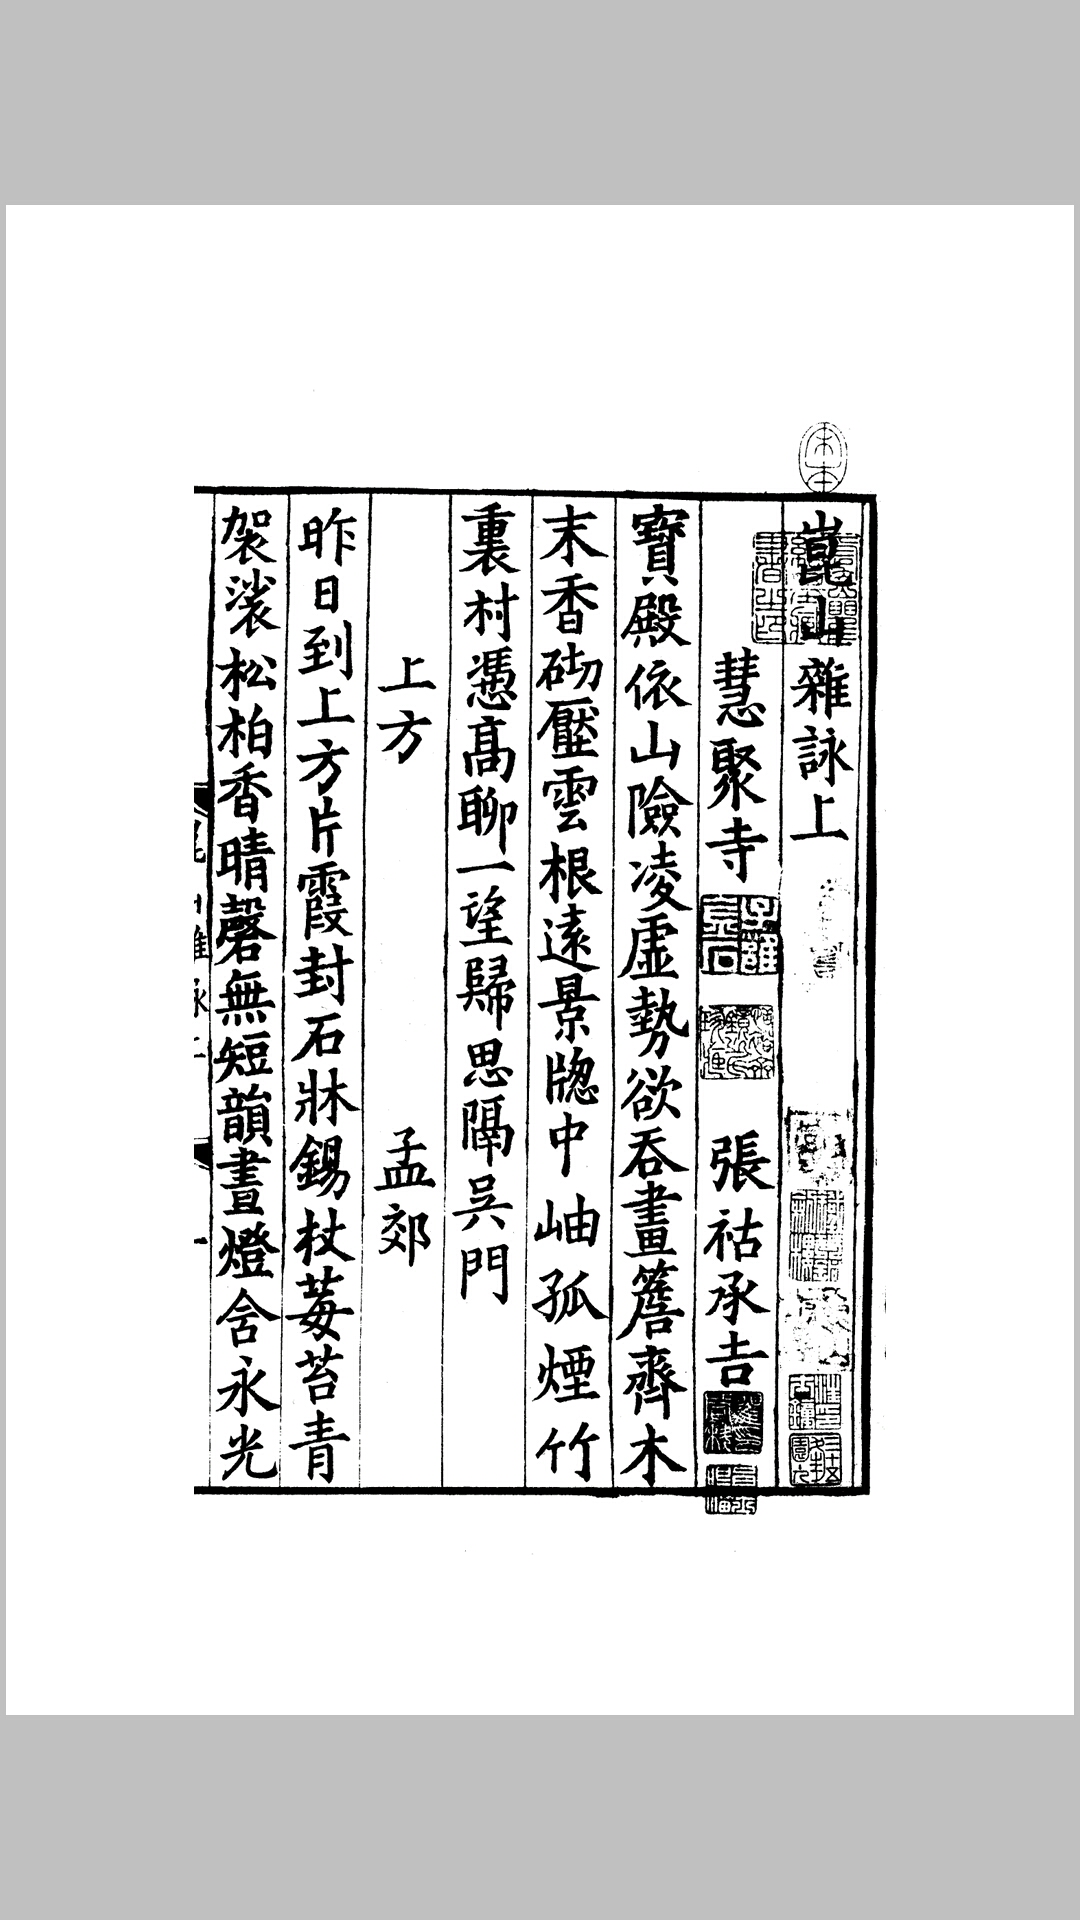 崑山雜詠上
慧聚寺 張祜承吉
寶殿依山險凌虛勢欲吞畫簷齊木
末香砌壓雲根遠景牎中岫孤煙竹
裏村憑高聊一望歸思隔吳門
上方 孟郊
昨日到上方片霞封石牀錫杖莓苔青
袈裟松柏香晴磬無短韻晝燈含永光